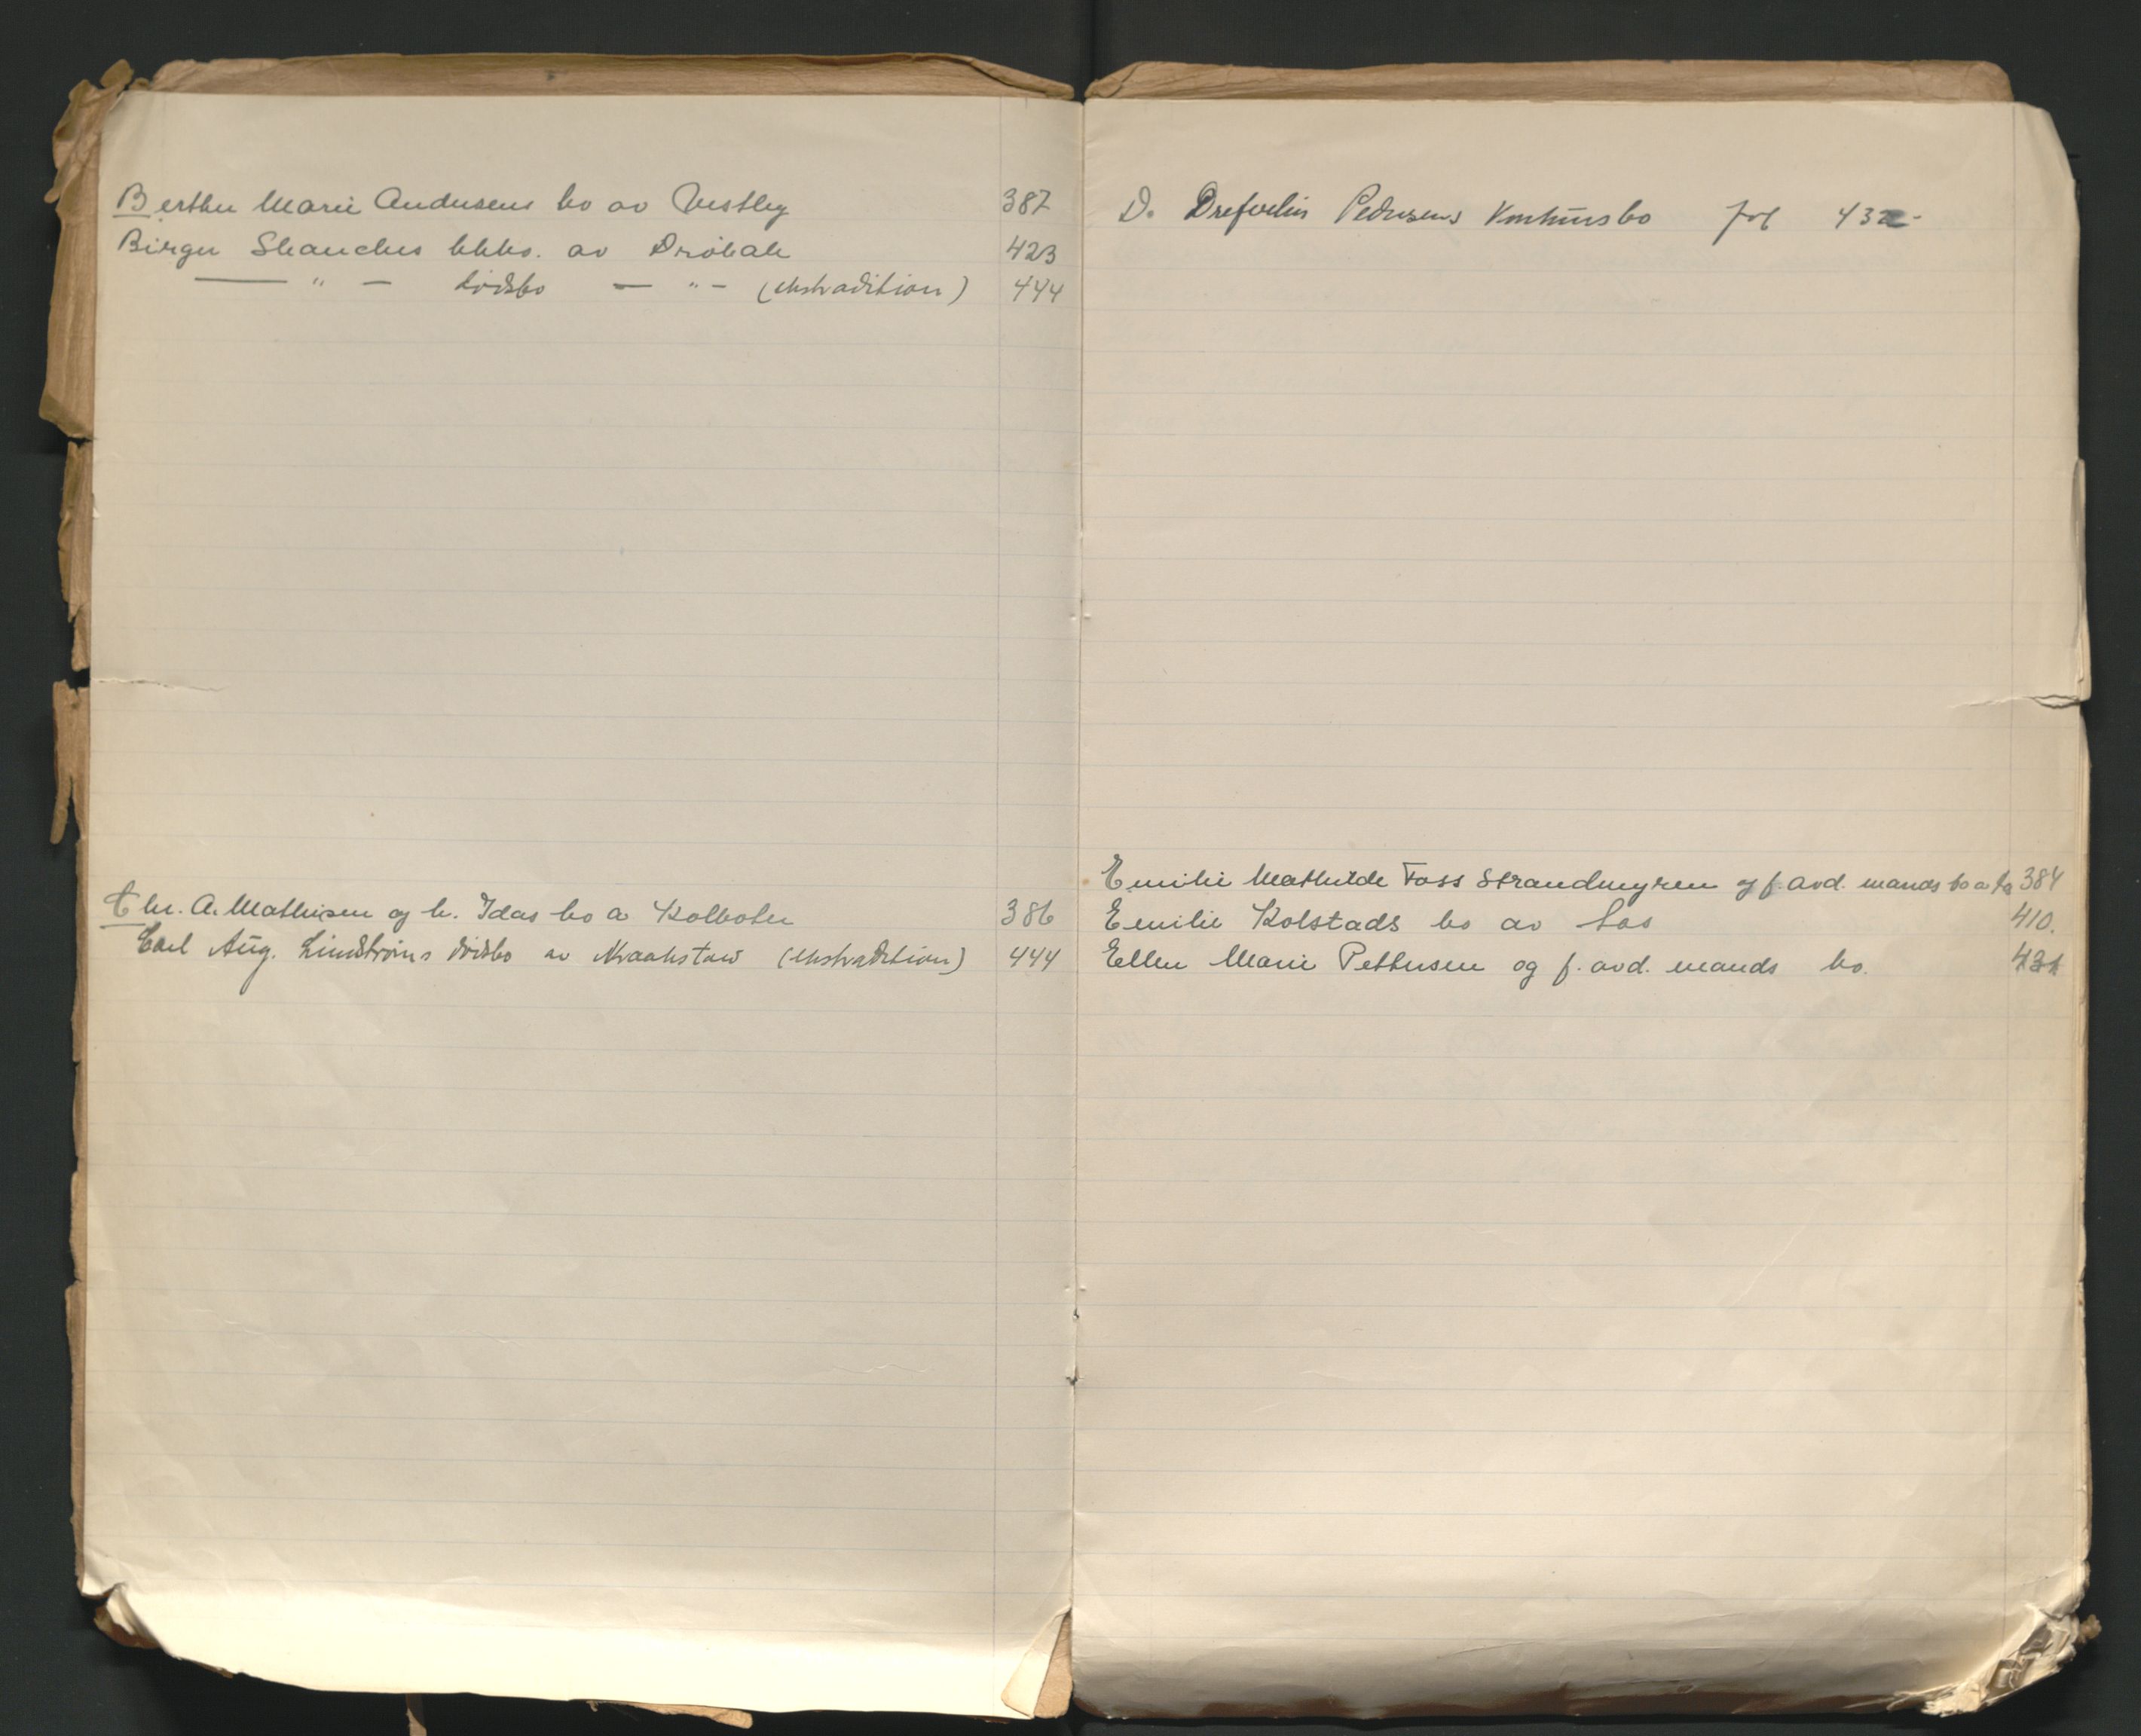 Berthe Marie Andersens bo av Vestby 387
Birger Skanches kkbo. av Drøbak 423
— " — dødsbo — " — (ekstradition) 444
Chr. A. Mathisen og h. Idas bo a Kolboten 386
Carl Aug. Lindstrøms dødsbo av Kraakstad (ekstradition) 444
D. Drefvelin Pedersens Konkursbo fol 432
Emilie Mathilde Foss Strandmyren og f. avd. mands bo 384
Emilie Kolstads bo av Aas 410.
Ellen Marie Pettersen og f. avd. mands bo. 431